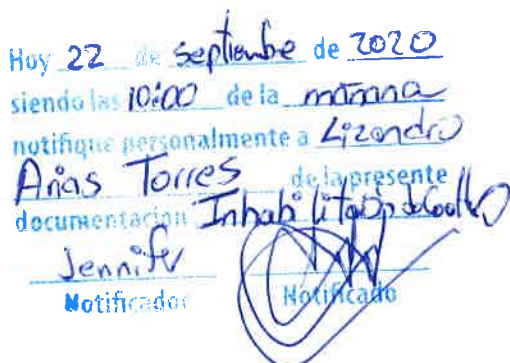 Hoy 22 de septiembre de 2020
siendo las 10:00 de la mañana
notifique personalmente a Lizandro
Arias Torres de la presente
documentación Inhabilitación de
Jennifer
Notificador Notificado